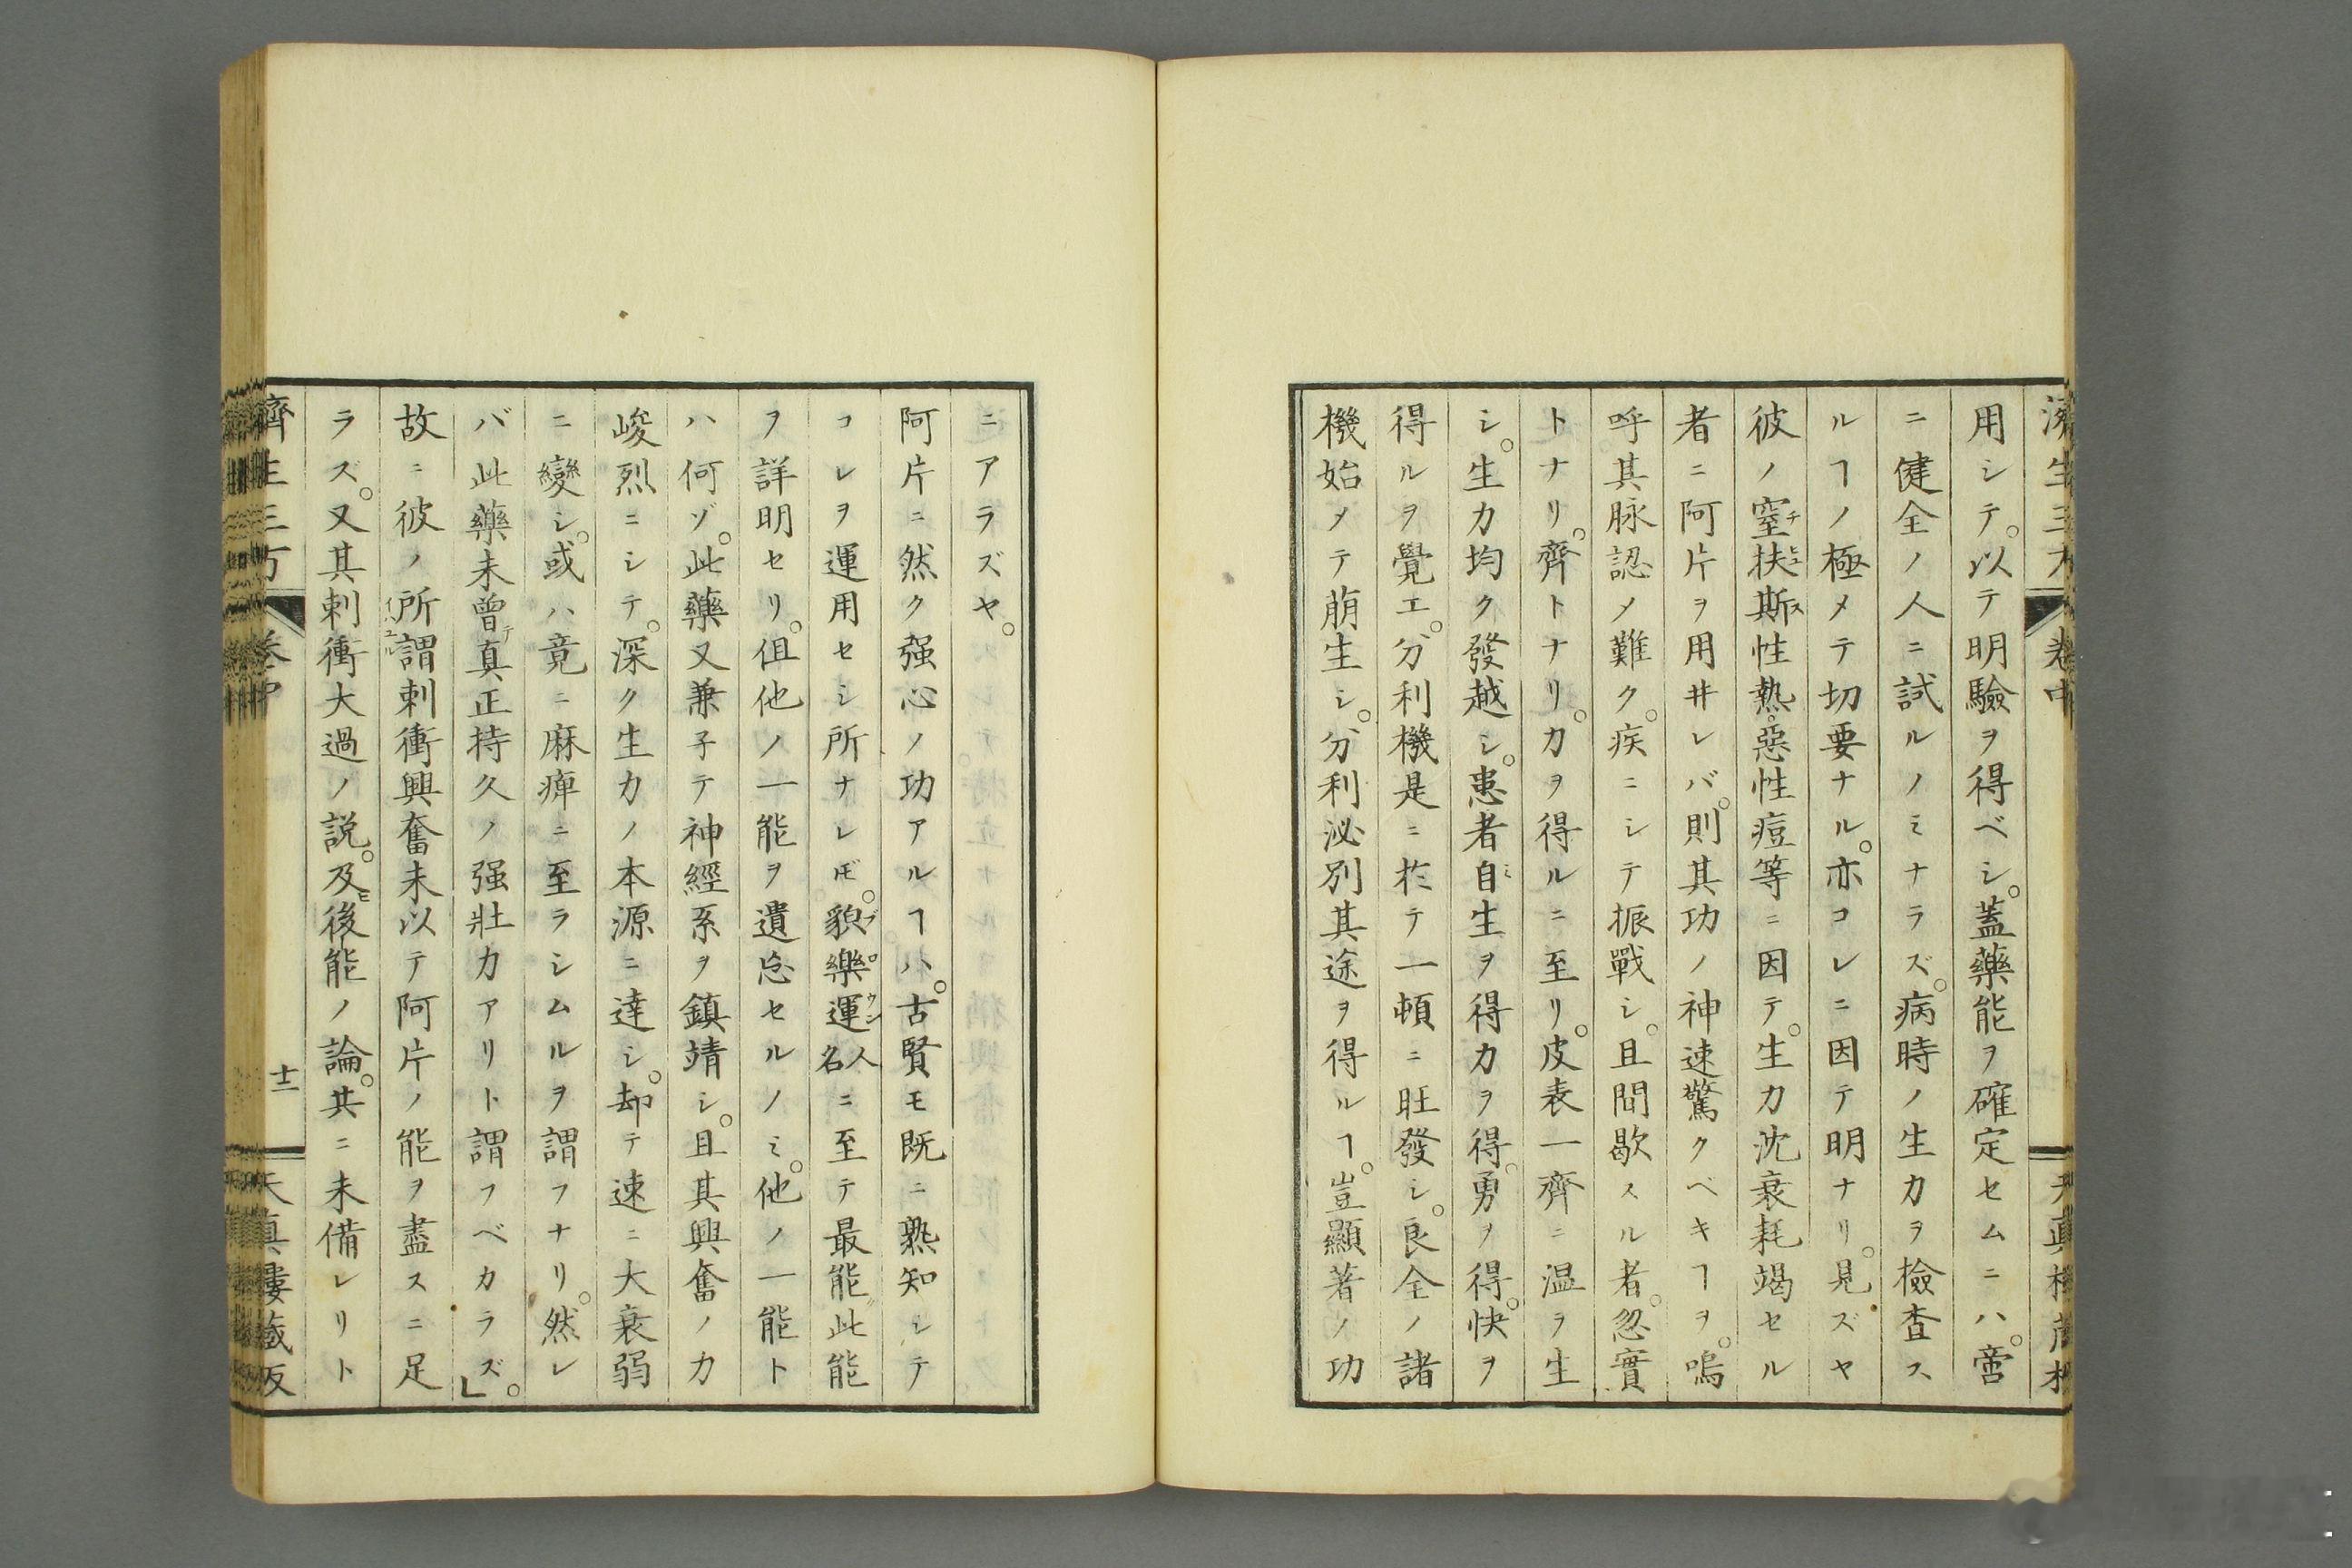 用シテ。以テ明驗ヲ得ベシ。蓋藥能ヲ確定セムニハ。啻
ニ健全ノ人ニ試ルノミナラズ。病時ノ生力ヲ檢査ス
ルヿノ極メテ切要ナル。亦コレニ因テ明ナリ。見ズヤ
彼ノ窒扶斯性熱。惡性痘等ニ因テ。生力沈衰耗竭セル
者ニ阿片ヲ用井レバ。則其功ノ神速驚クベキヿヲ。嗚
呼其脉認メ難ク。疾ニシテ振戰シ。且間歇スル者。忽實
トナリ。齊トナリ。力ヲ得ルニ至リ。皮表一齊ニ温ヲ生
シ。生力均ク發越シ。患者自ミ生ヲ得力ヲ得。勇ヲ得。快ヲ
得ルヲ覺エ。分利機是ニ於テ一頓ニ旺發シ。良全ノ諸
機始メテ萠生シ。分利泌別其途ヲ得ルヿ。豈顯著ノ功
ニアラズヤ。
阿片ニ然ク强心ノ功アルヿハ。古賢モ既ニ熟知シテ
コレヲ運用セシ所ナレ𪜈。貌樂運人名ニ至テ最能此能
ヲ詳明セリ。但他ノ一能ヲ遺忘セルノミ。他ノ一能ト
ハ何ゾ。此藥又兼子テ神經系ヲ鎮靖シ。且其興奮ノ力
峻烈ニシテ。深ク生力ノ本源ニ達シ。却テ速ニ大衰弱
ニ變シ。或ハ竟ニ麻痺ニ至ラシムルヲ謂フナリ。然レ
バ此藥未曾テ真正持久ノ强壯力アリト謂フベカラズ。」
故ニ彼ノ所謂刺衝興奮未以テ阿片ノ能ヲ盡スニ足
ラズ。又其刺衝大過ノ説。及ヒ後能ノ論。其ニ未備レリト
濟生三方 卷中 十二 天真樓蔵版